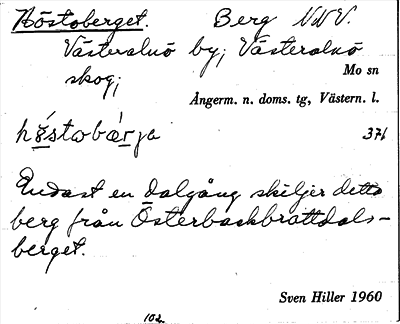 Höstoberget. Berg VNV.
Västeralnö by; Västeralnö
skog;
Mo sn
Ångerm. n. doms. tg, Västern. l.
hö́stobær̀ja 371
Endast en dalgång skiljer detta
berg från Österbackbrattdals-
berget.
Sven Hiller 1960
102.